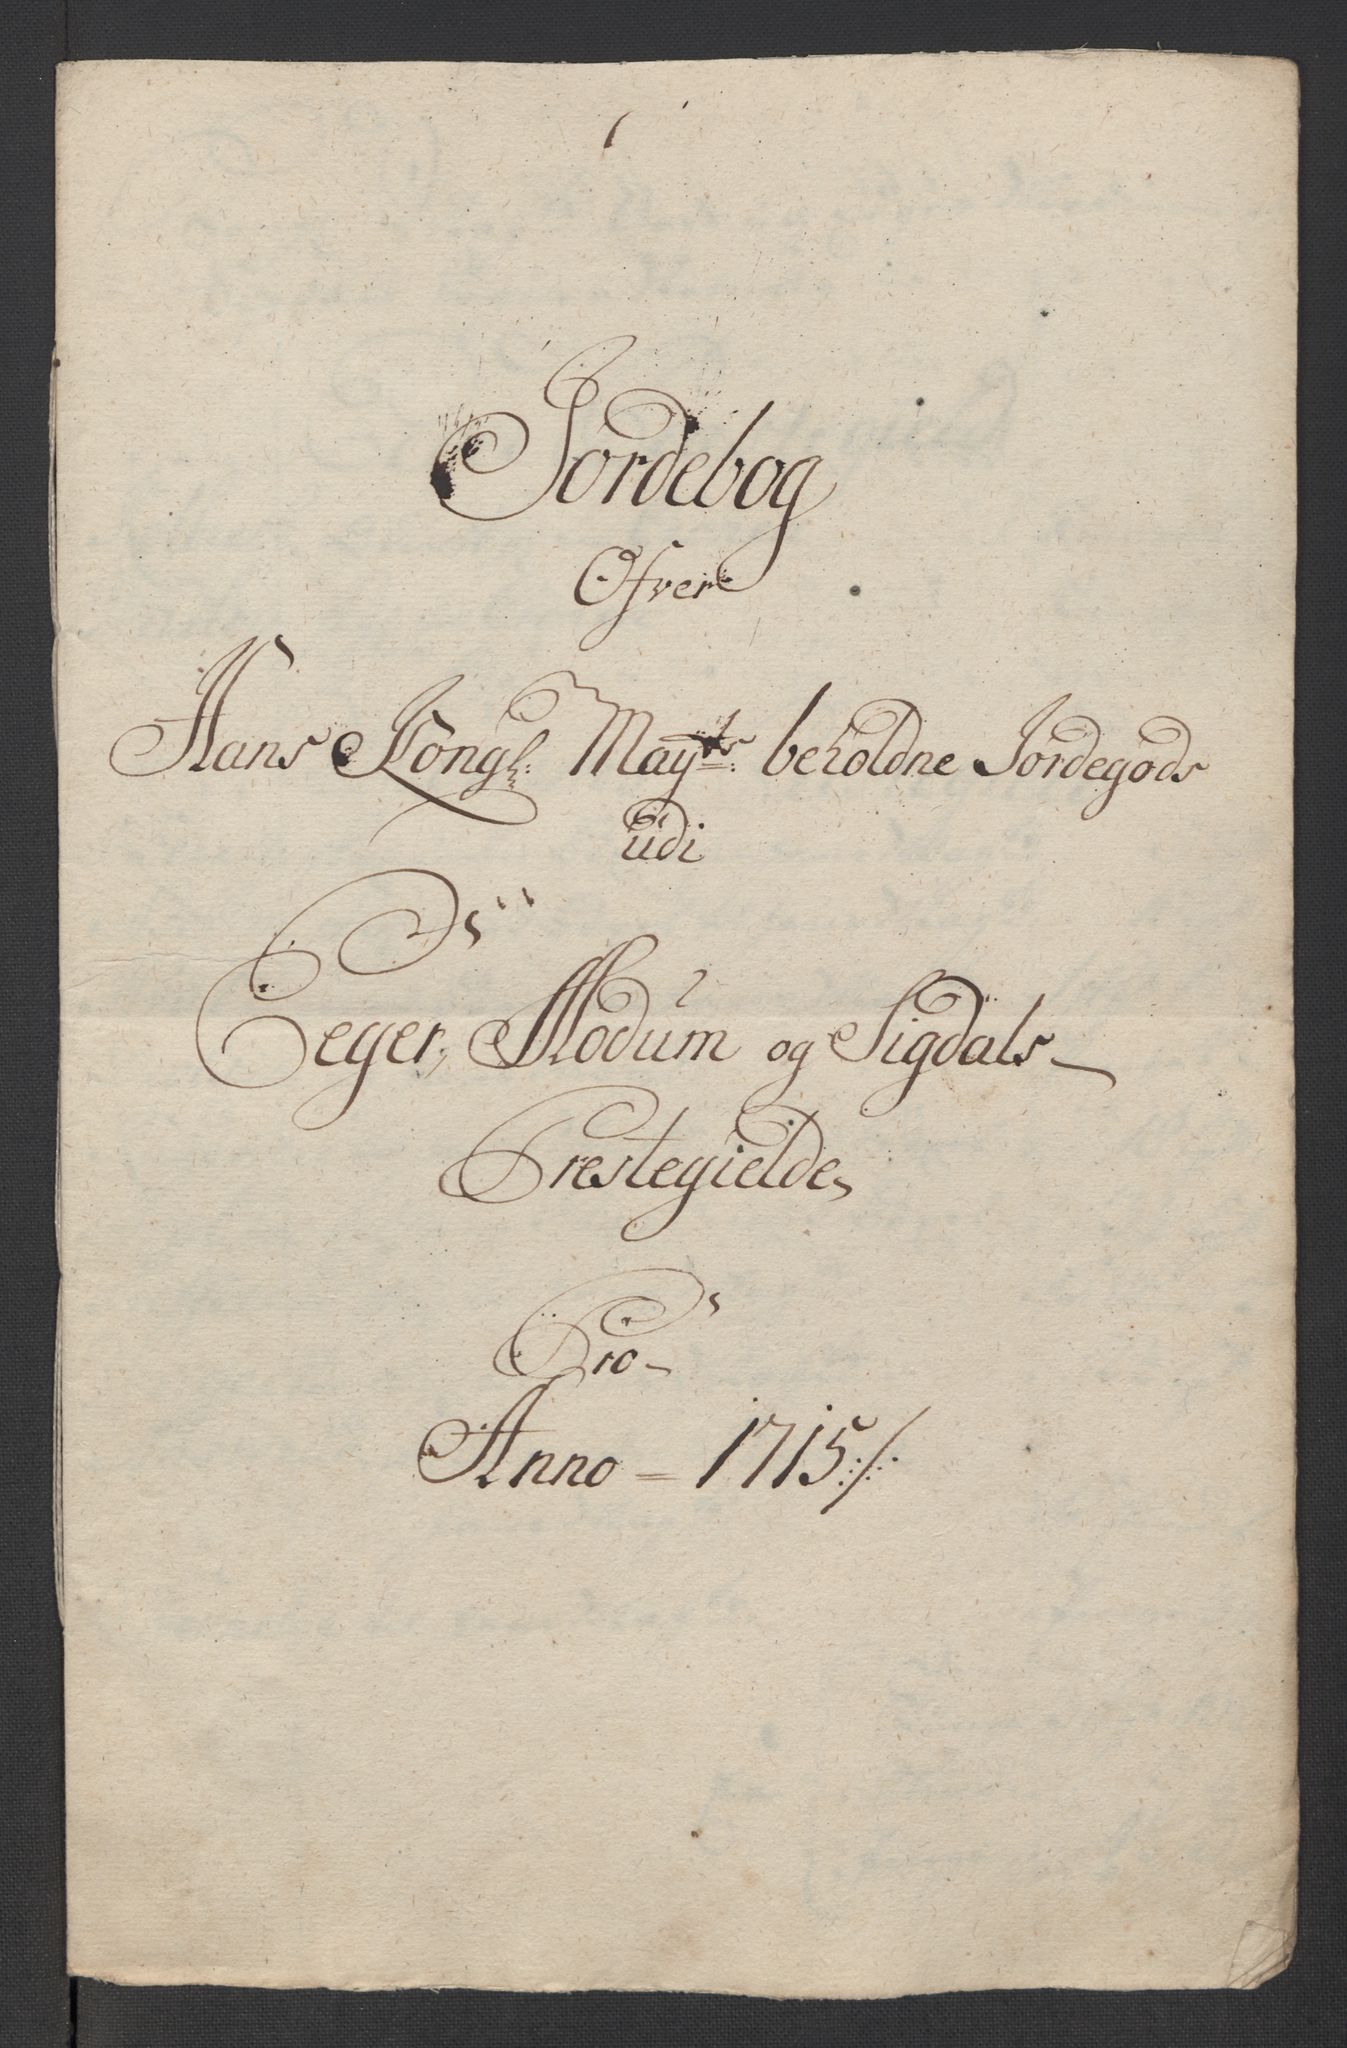 Jordebog
Ofver
Hans Kongl: Mayts: beholdne Jordegods
udi
Eeger, Modum og Sigdals
Prestegielde,
Pro
Anno - 1715 ./.